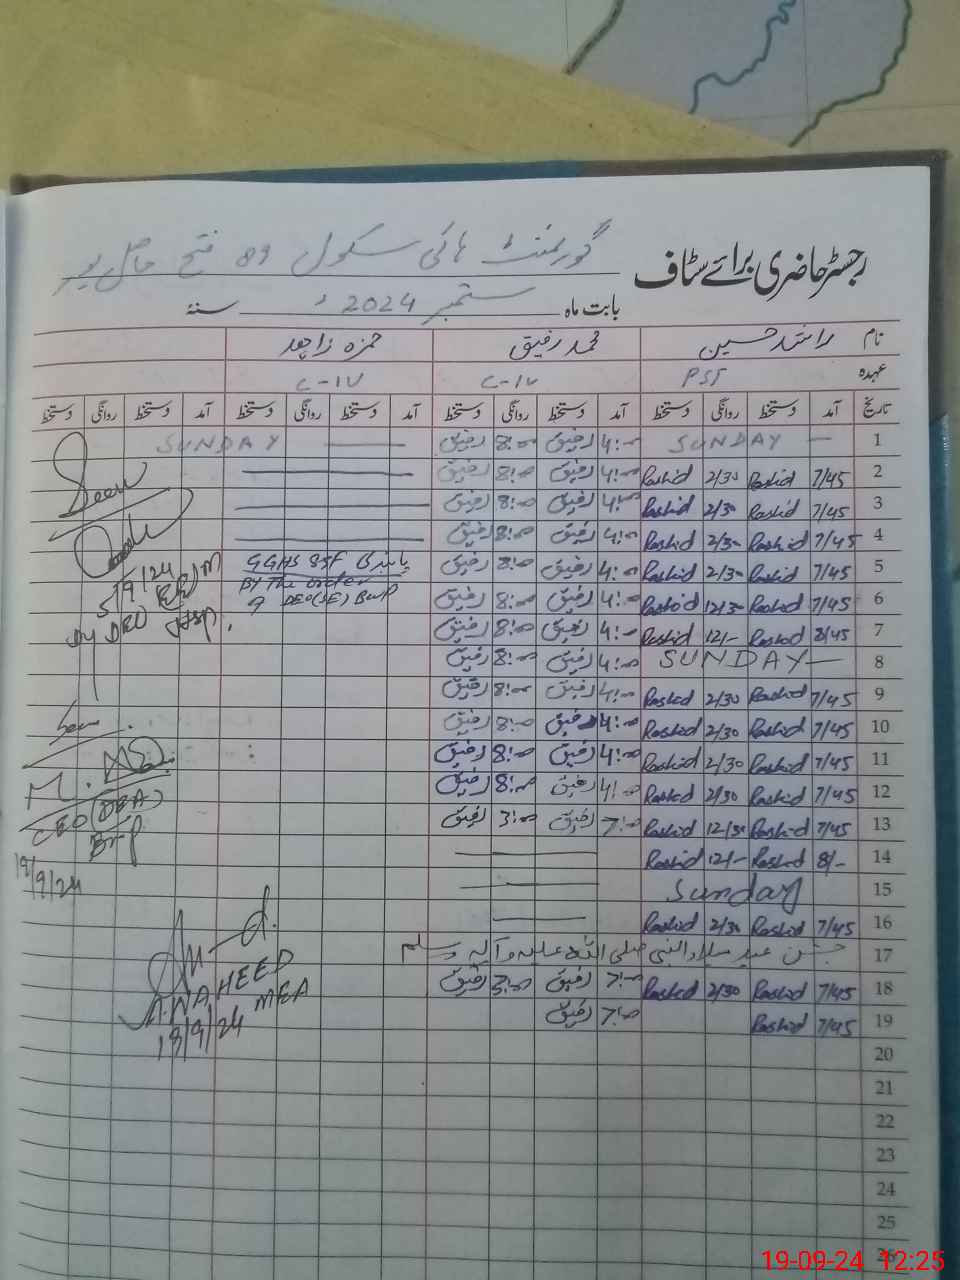 رجسٹر حاضری برائے سٹاف گورنمنٹ ہائی سکول 89 فتح حاصل پور
بابت ماہ ستمبر 2024ء سنہ
نام راشد حسین محمد رفیق حمزہ زاہد
عہدہ PST C-IV C-IV
تاریخ آمد دستخط روانگی دستخط آمد دستخط روانگی دستخط آمد دستخط روانگی دستخط آمد دستخط روانگی دستخط
1 — SUNDAY 4:00 رفیق 8:00 رفیق — SUNDAY
2 7/45 Rashid 2/30 Rashid 4:00 رفیق 8:00 رفیق —
3 7/45 Rashid 2/30 Rashid 4:00 رفیق 8:00 رفیق —
4 7/45 Rashid 2/30 Rashid 4:00 رفیق 8:00 رفیق —
5 7/45 Rashid 2/30 Rashid 4:00 رفیق 8:00 رفیق GGHS 85F
6 7/45 Rashid 12/30 Rashid 4:00 رفیق 8:00 رفیق By The order
of DEO(SE) BWP
7 8/45 Rashid 12/- Rashid 4:00 رفیق 8:00 رفیق
8 SUNDAY — 4:00 رفیق 8:00 رفیق
9 7/45 Rashid 2/30 Rashid 4:00 رفیق 8:00 رفیق
10 7/45 Rashid 2/30 Rashid 4:00 رفیق 8:00 رفیق
11 7/45 Rashid 2/30 Rashid 4:00 رفیق 8:00 رفیق
12 7/45 Rashid 2/30 Rashid 4:00 رفیق 8:00 رفیق
13 7/45 Rashid 12/30 Rashid 7:00 رفیق 3:00 رفیق
14 8/- Rashid 12/- Rashid —
15 Sunday —
16 7/45 Rashid 2/30 Rashid —
17 جشن عید میلاد النبی صلی اللہ علیہ وآلہ وسلم
18 7/45 Rashid 2/30 Rashid 7:00 رفیق 3:00 رفیق
19 7/45 Rashid 7:00 رفیق
20
21
22
23
24
25
26
Seen
5/9/24
Dy DEO
Seen
CEO (DEA)
Bwp
18/9/24
A. NAHEED
MEA
18/9/24
19-09-24 12:25